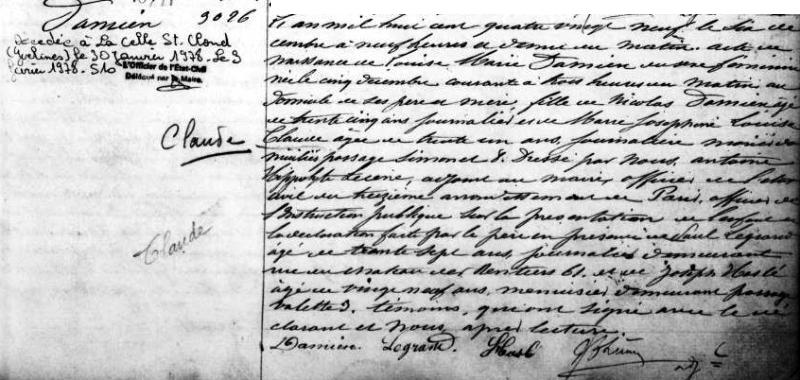 Damien 3026
Decedée à La Celle St. Cloud
(Yvelines) le 30 Janvier 1978. Le 3
février 1978. S10
L'Officier de l'État-Civil
Délégué par le Maire.
Claude
Claude
L'an mil huit cent quatre vingt neuf le six de
cembre à neuf heures et demie du matin. acte de
naissance de Louise Marie Damien du sexe féminin
née le cinq décembre courant à trois heures du matin au
domicile de ses père et mère, fille de Nicolas Damien âgé
de trente cinq ans journalier et de Marie Joséphine Louise
Claude âgée de trente un ans, journalière mariés do
miciliés passage Simonet 8. Dressé par Nous, antoine
Hippolyte adjoint au maire, officier de l'état
civil du treizième arrondissement de Paris, officier de
l'Instruction publique sur la présentation de l'enfant et
la déclaration faite par le père en présence de Paul Legrand
âgé de trente sept ans, journalier demeurant
rue du château des Rentiers 61. et de Joseph
âgé de vingt neuf ans, menuisier demeurant passage
Valette 3. témoins, qui ont signé avec le dé
clarant et Nous, après lecture.
Damien. Legrand.